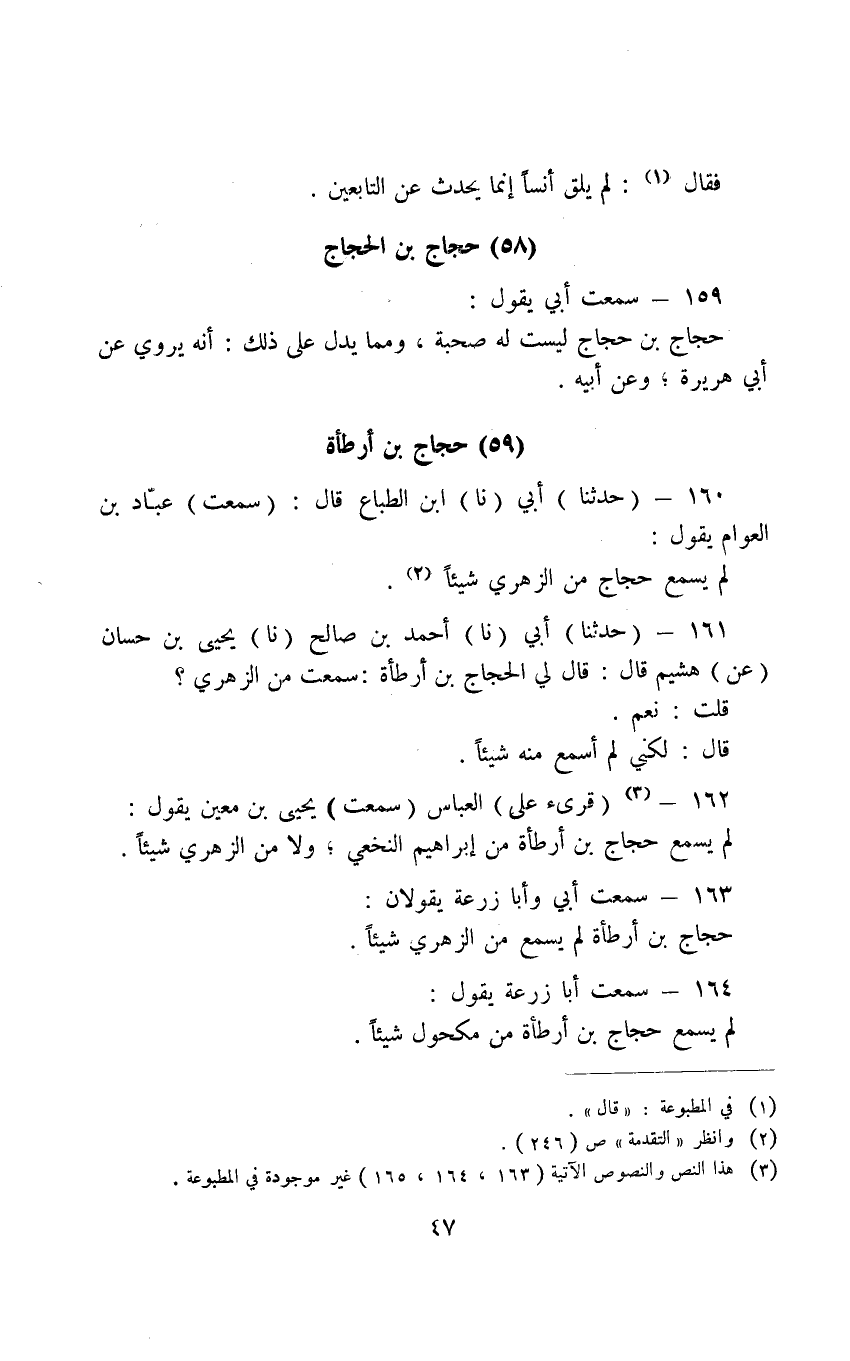 فقال (١) : لم يلق أنساً إنما يحدث عن التابعين .
(٥٨) حجاج بن الحجاج
١٥٩ – سمعت أبي يقول :
حجاج بن حجاج ليست له صحبة ، ومما يدل على ذلك : أنه يروي عن
أبي هريرة ؛ وعن أبيه .
(٥٩) حجاج بن أرطأة
١٦٠ – ( حدثنا ) أبي ( نا ) ابن الطباع قال : ( سمعت ) عبّاد بن
العوام يقول :
لم يسمع حجاج من الزهري شيئاً (٢) .
١٦١ – ( حدثنا ) أبي ( نا ) أحمد بن صالح ( نا ) يحيى بن حسان
( عن ) هشيم قال : قال لي الحجاج بن أرطأة :سمعت من الزهري ؟
قلت : نعم .
قال : لكني لم أسمع منه شيئاً .
١٦٢ – (٣) ( قرىء على ) العباس ( سمعت ) يحيى بن معين يقول :
لم يسمع حجاج بن أرطأة من إبراهيم النخعي ؛ ولا من الزهري شيئاً .
١٦٣ – سمعت أبي وأبا زرعة يقولان :
حجاج بن أرطأة لم يسمع من الزهري شيئاً .
١٦٤ – سمعت أبا زرعة يقول :
لم يسمع حجاج بن أرطأة من مكحول شيئاً .
(١) في المطبوعة : « قال » .
(٢) وانظر « التقدمة » ص ( ٢٤٦ ) .
(٣) هذا النص والنصوص الآتية ( ١٦٣ ، ١٦٤ ، ١٦٥ ) غير موجودة في المطبوعة .
٤٧